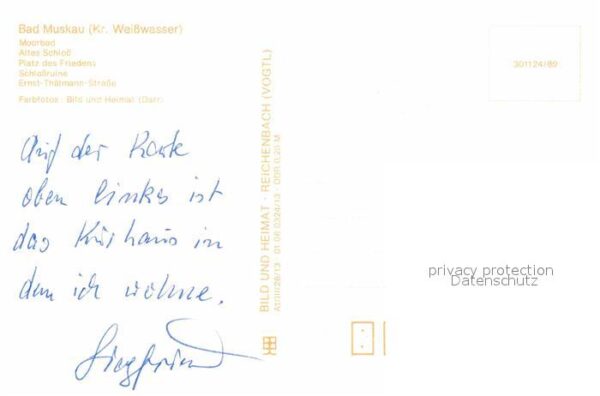 Bad Muskau (Kr. Weißwasser)
Moorbad
Altes Schloß
Platz des Friedens
Schloßruine
Ernst-Thälmann-Straße
Farbfotos: Bild und Heimat (Darr)
Auf der Karte
oben links ist
das Kurhaus in
dem ich wohne.
Siegfried
BILD UND HEIMAT · REICHENBACH (VOGTL)
A1/III/26/13 01 06 0324/13 DDR 0,20 M
301124/89
privacy protection
Datenschutz